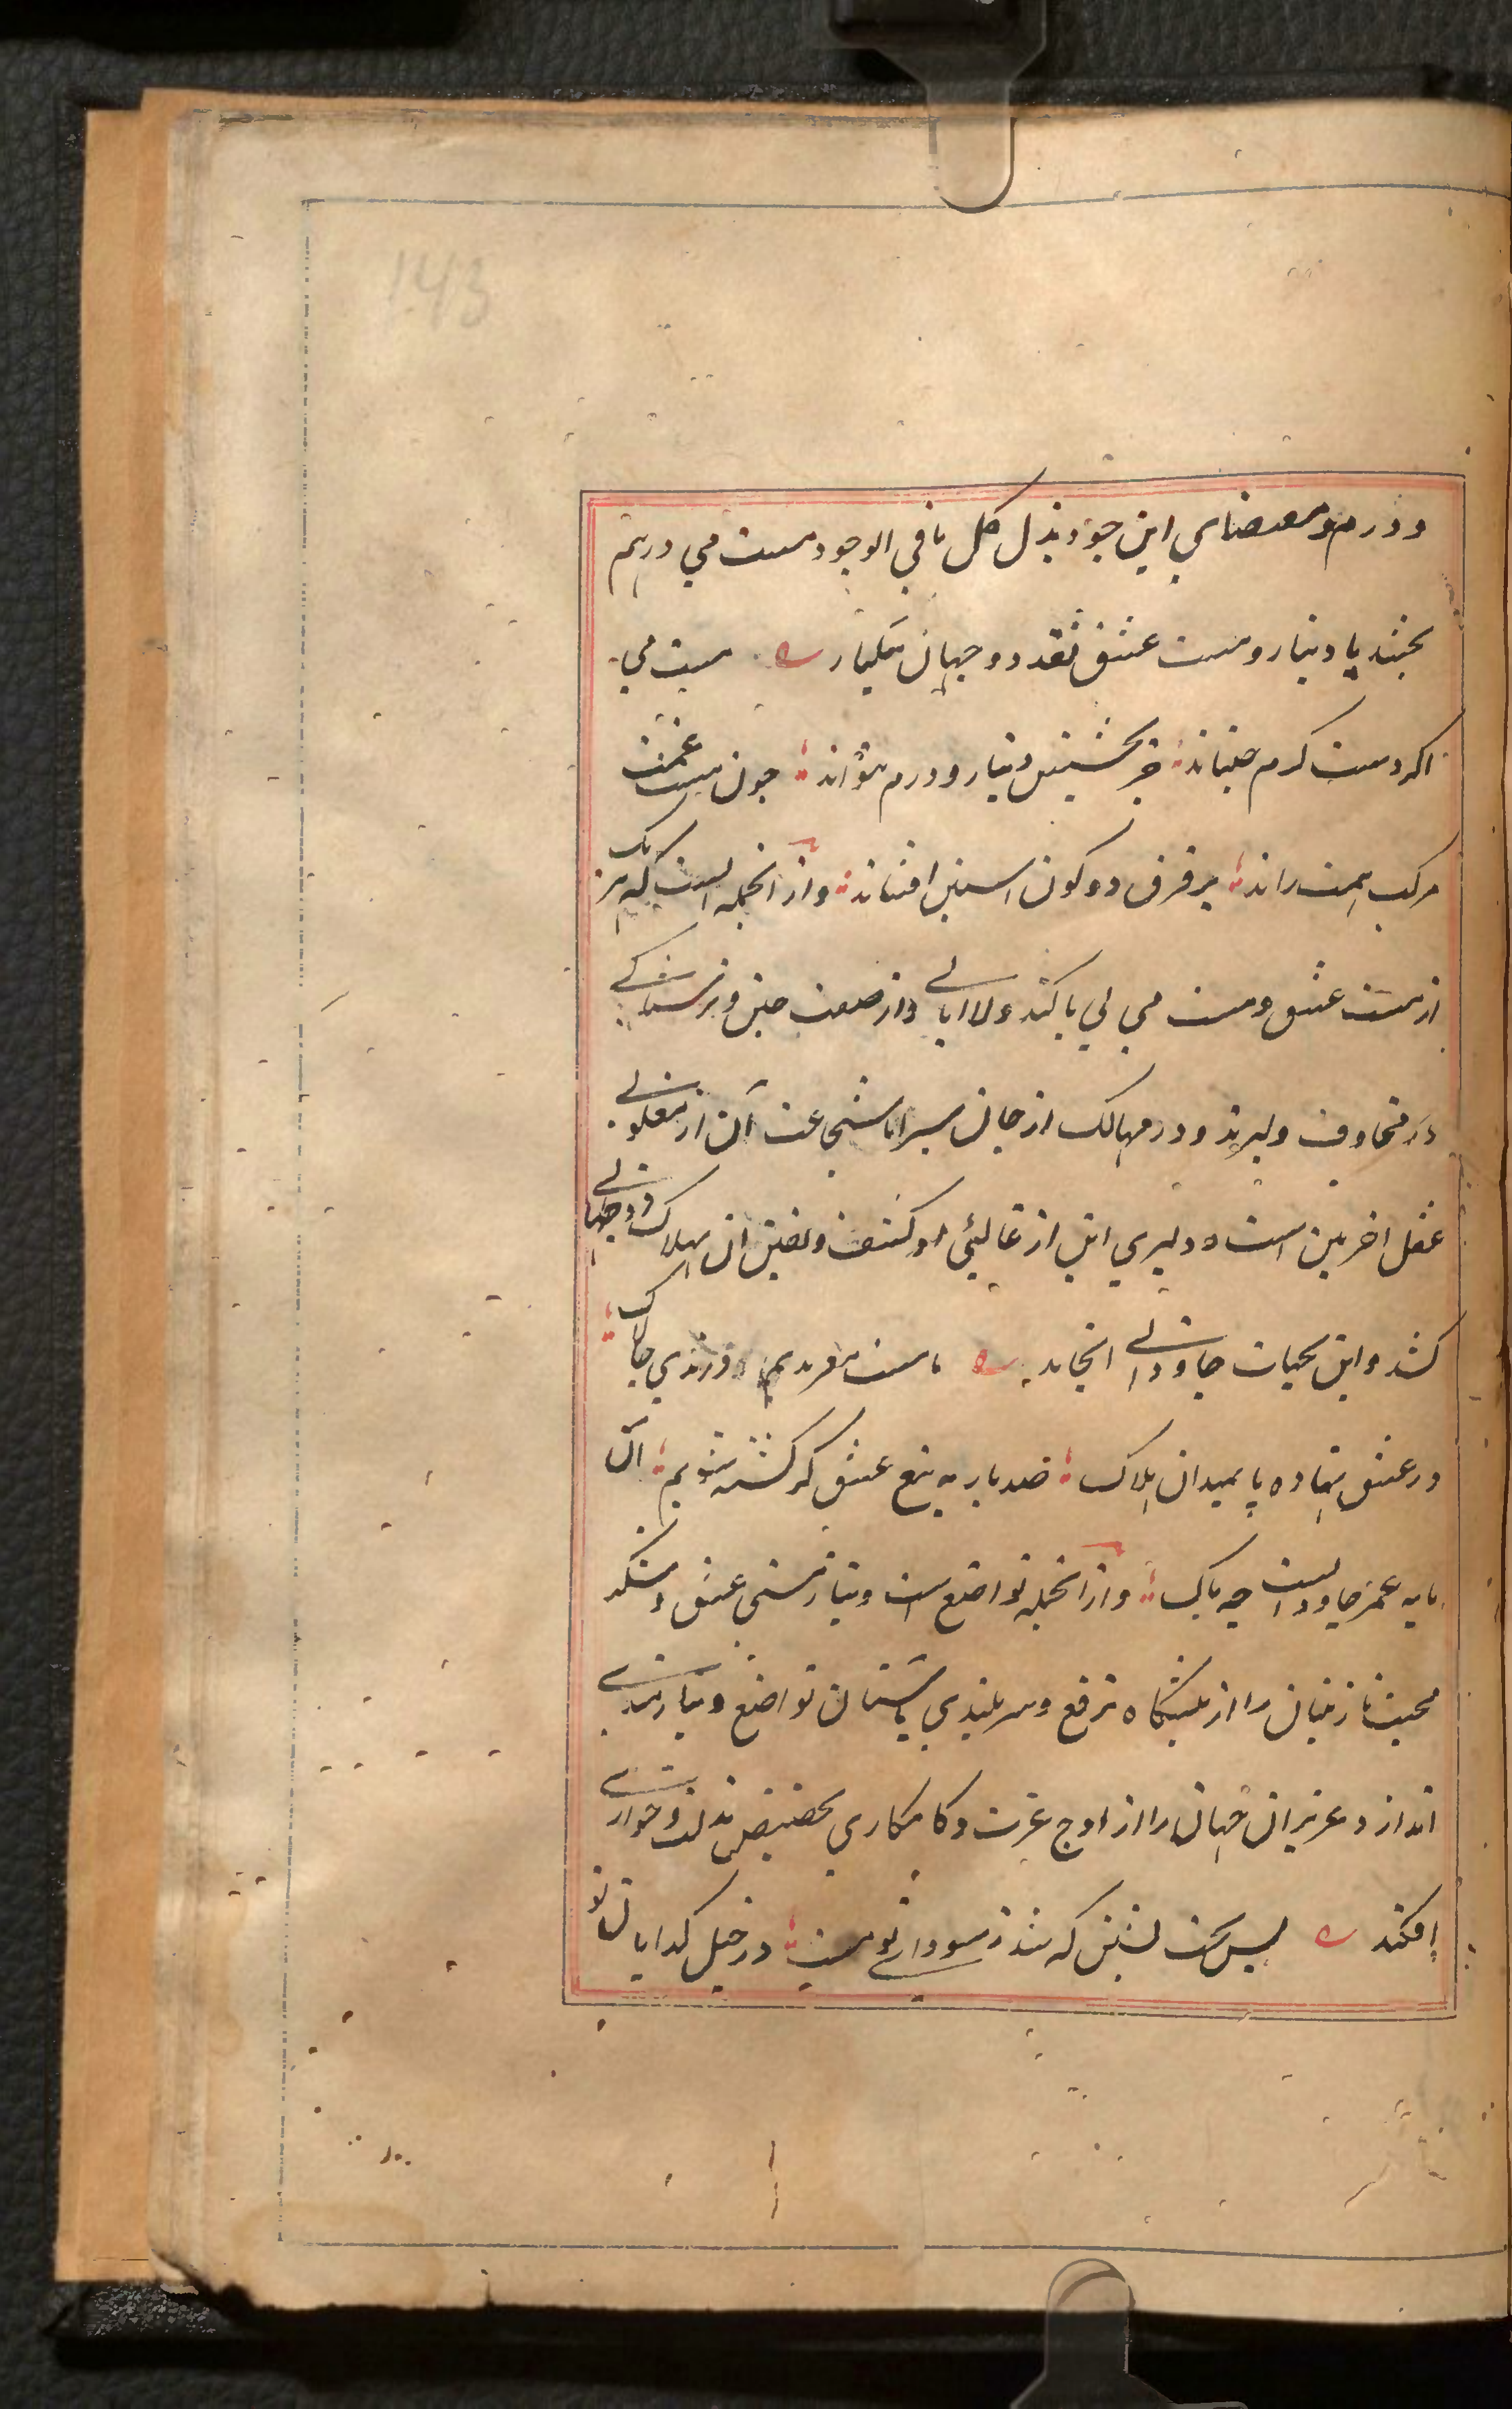 143
و درم و مقتضای این جود بذل کل مافی الوجود مست می درهم
بخشد یا دینار و مست عشق نقد دو جهان بیکبار مست می
اکر دست کرم جنباند جز بخشیدن دینار و درم نتواند چون مست غمت
مرکب همت راند بر فرق دو کون استین افشاند و از انجمله انست که هر یک
از مست عشق و مست می بی باکند و لا ابالی و از صفت جبن و ترسناکی
در مخاوف دلیرند و در مهالک از جان سیر اما شجاعت آن از مغلوبی
عقل اخربین است و دلیری این از غالبی نور کشف و یقین ان بهلاک دو جهانی
کشد و این بحیات جاودانی انجامد ما مست و معربدیم و رندی چالاک
در عشق نهاده پا بمیدان هلاک صد بار به تیغ عشق کر کشته شویم آن
مایه عمر جاودانیست چه باک و از انجمله تواضع است و نیاز مستی عشق و سکر
محبت نازنینان را از پیشکاه ترفع و سربلندی باستان تواضع و نیازمندی
اندازد و عزیزان جهان را از اوج عزت و کامکاری بحضیض مذلت و خواری
افکند بس تخت نشین که شد ز سودای تو مست در خیل کدایان تو